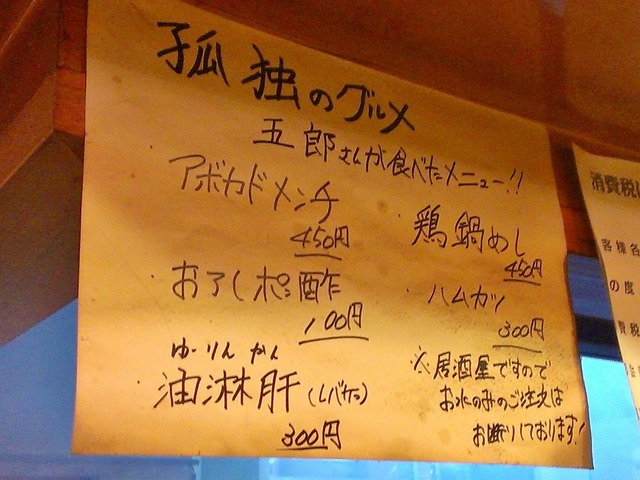 孤独のグルメ
五郎さんが食べたメニュー!!
アボカドメンチ
450円
おろしポン酢
100円
ゆーりんかん
油淋肝(レバケン)
300円
鶏鍋めし
450円
ハムカツ
300円
※居酒屋ですので
お水のみのご注文は
お断りしております!
消費税
客様各
の度
費税